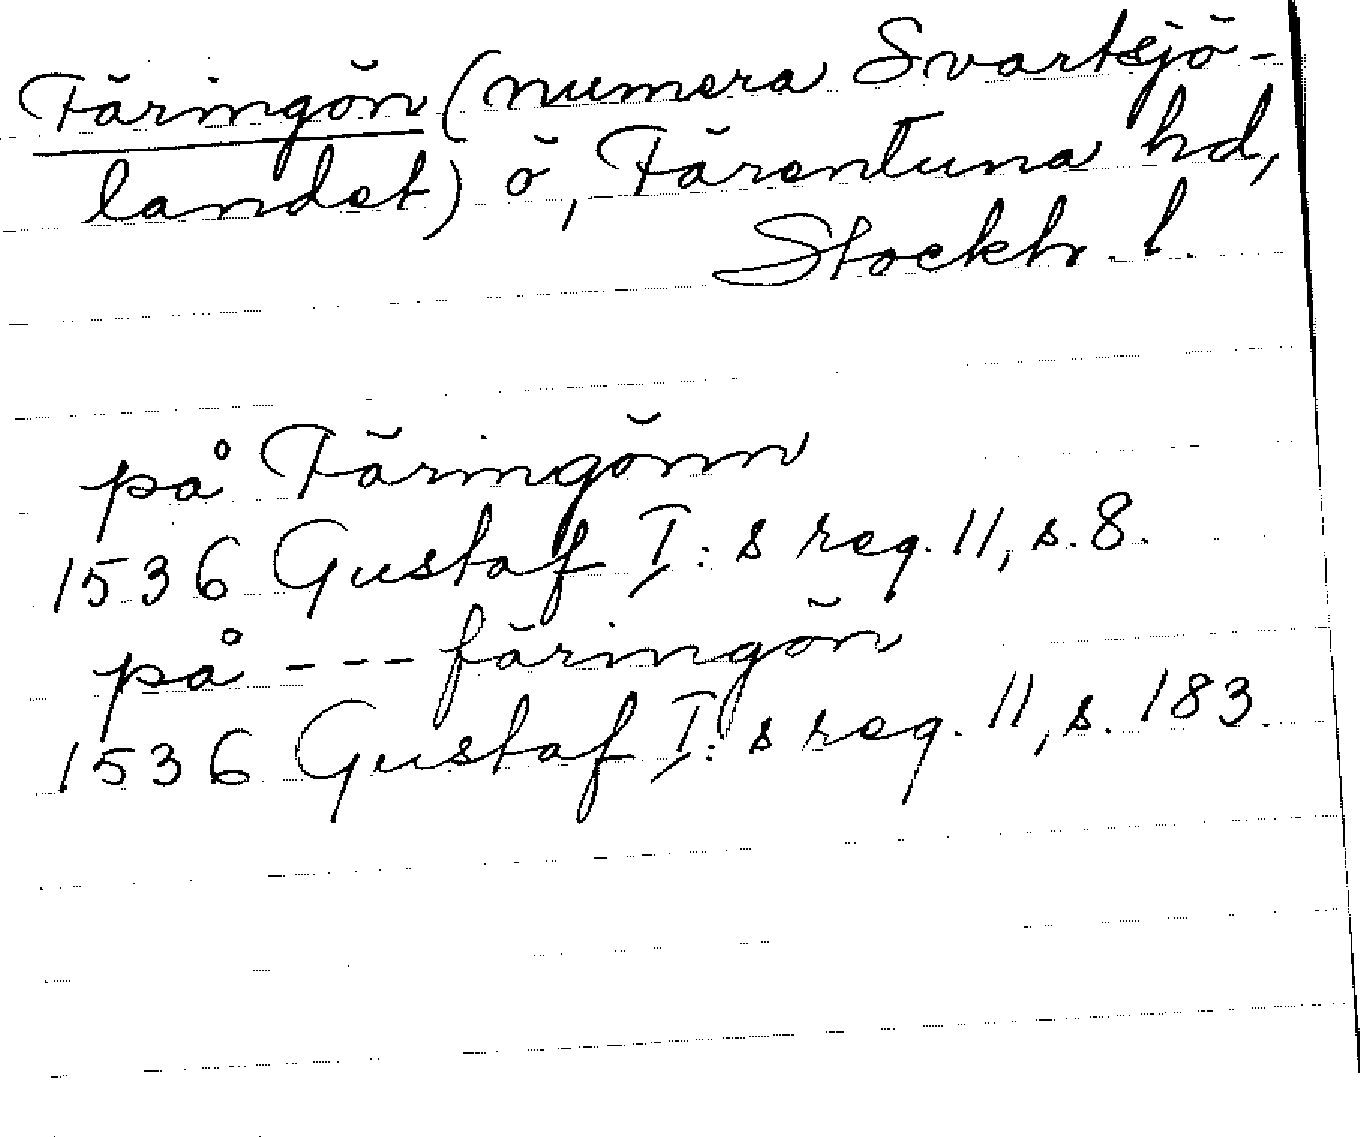 Färingön (numera Svartsjö-
landet) ö, Färentuna hd,
Stockh. l.
på Färingönn
1536 Gustaf I:s reg. 11, s. 8.
på --- färingön
1536 Gustaf I:s reg. 11, s. 183